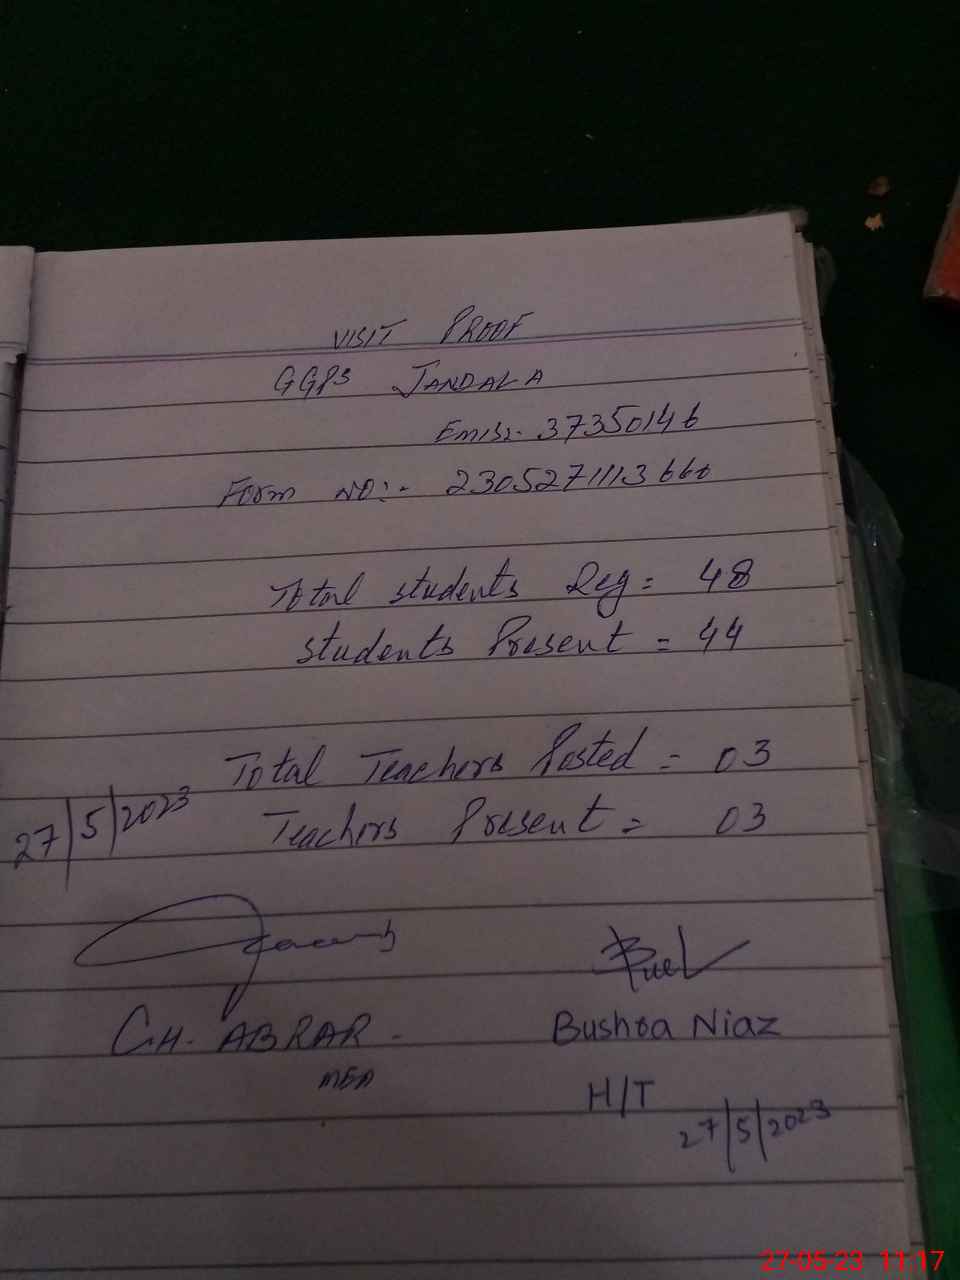 VISIT PROOF
GGPS JANDALA
Emis:- 37350146
Form NO:- 2305271113660
Total students Reg = 48
students Present = 44
Total Teachers Posted = 03
Teachers Present = 03
27/5/2023
C.H. ABRAR
MEA
Bushra Niaz
H/T
27/5/2023
27-05-23 11:17